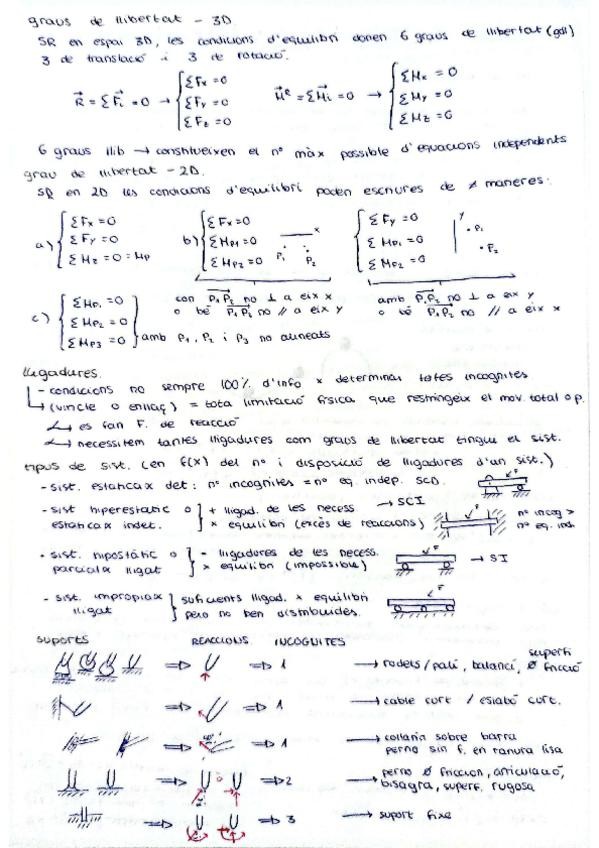 graus de llibertat - 3D
SR en espai 3D, les condicions d'equilibri donen 6 graus de llibertat (gdl)
3 de translació i 3 de rotació.
R = ΣFi = 0 → { ΣFx = 0 ΣFy = 0 ΣFz = 0 M^R = ΣMi = 0 → { ΣMx = 0 ΣMy = 0 ΣMz = 0
6 graus llib → constitueixen el nº màx possible d'equacions independents
grau de llibertat - 2D.
SR en 2D les condicions d'equilibri poden escriure's de ≠ maneres:
a) { ΣFx = 0 ΣFy = 0 ΣMz = 0 = Mp
b) { ΣFx = 0 ΣMp1 = 0 ΣMp2 = 0 x P1 P2
{ ΣFy = 0 ΣMp1 = 0 ΣMp2 = 0 y P1 P2
con P1P2 no ⊥ a eix x
o bé P1P2 no // a eix y
amb P1P2 no ⊥ a eix y
o bé P1P2 no // a eix x
c) { ΣMp1 = 0 ΣMp2 = 0 ΣMp3 = 0 } amb P1, P2 i P3 no alineats
lligadures.
- condicions no sempre 100% d'info x determinar totes incògnites
→ (vincle o enllaç) = tota limitació física que restringeix el mov. total o p.
→ es fan F. de reacció
→ necessitem tantes lligadures com graus de llibertat tingui el sist.
tipus de sist. (en f(x) del nº i disposició de lligadures d'un sist.)
- sist. estàticax det: nº incògnites = nº eq. indep. SCD. F
- sist hiperestàtic o estàticax indet. } + lligad. de les necess. → SCI x equilibri (excés de reaccions) F nº incog > nº eq. ind
- sist. hipostàtic o parcialx lligat } - lligadures de les necess. x equilibri (impossible) F → SI
- sist. impropiax lligat } suficients lligad. x equilibri però no ben distribuides. F
suports REACCIONS INCÒGNITES
⇒ ⇒ 1 → rodets/patí, balancí, superfi ∅ fricció
⇒ ⇒ 1 → cable curt / eslabó curt.
⇒ ⇒ 1 → collarín sobre barra
perno sin f. en ranura lisa
⇒ o ⇒ 2 → perno ∅ friccion, articulació,
bisagra, superf. rugosa
⇒ ⇒ 3 → suport fixe